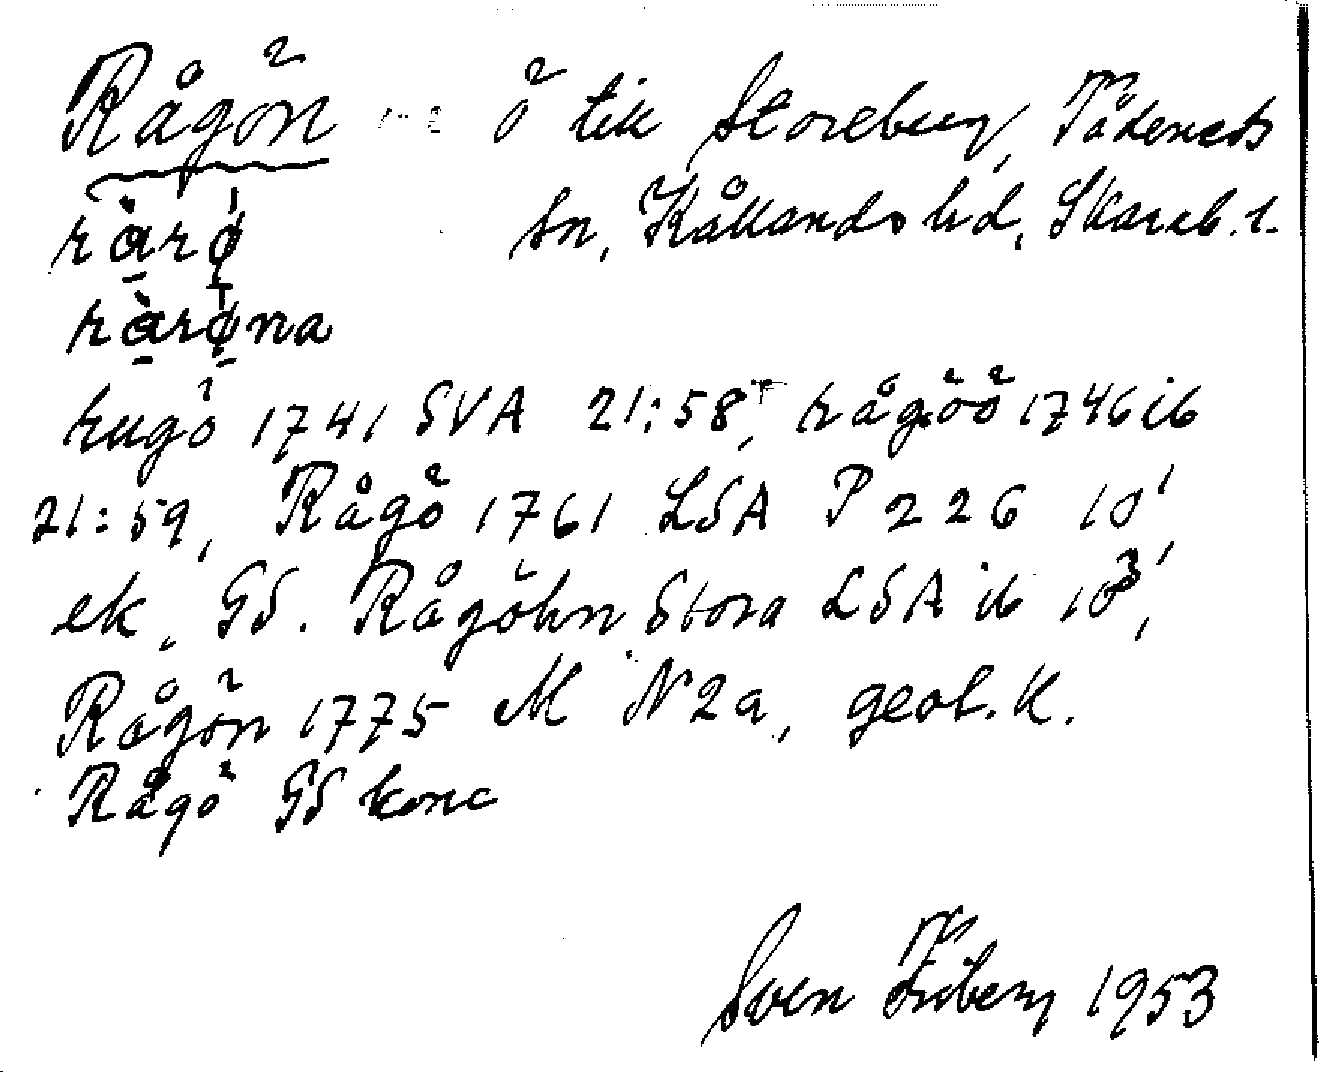 Rågön ö tik Storeberg, Tådenets
rårö sn, Kållands hd, Skarab. l.
råröna
rugö 1741 SVA 21:58, rågöö 1746 ib
21:59, Rågö 1761 LSA P 226 10¹
ek, GS. Rågöhn Stora LSA ib 10³,
Rågön 1775 M N2a, geol. k.
Rågö GS konc
Sven Friberg 1953